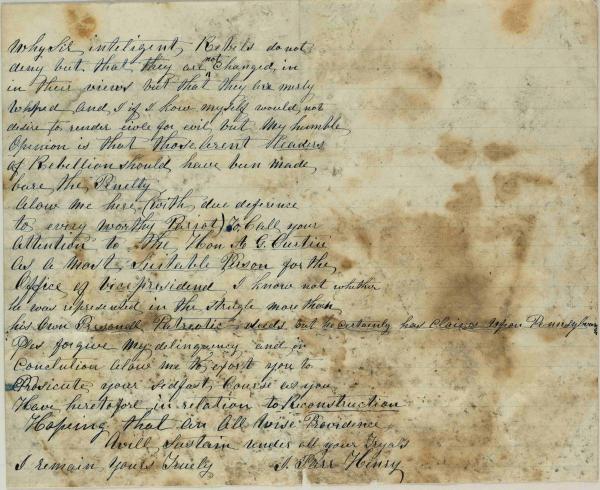 Why Sir inteligent Rebels do not
deny but that they are not Changed in
in their views but that they are merly
Whiped and I if I know myself would not
desire to render evele for evil but My humble
Opinion is that those Leaders
of Rebellion should have been made
bare the Penelty
Alow me here (With due deference
to every worthy Patriot) To Call your
Attention to The Hon A. G. Curtin
as a Most Suitable Person for the
Office of Vicepresidend I know not whether
he was represented in the Strugle more than
his Own Personall Patreotic deeds but he certainly has claims upon Pennsylvania
Ples forgive My delinquency and in
Conclution Alow me to exort you to
Prosicute your Stedfast Course as you
Have heretofore in relation to Reconstruction
Hoping that An All Wise Providence
Will Sustain under all your Tryals
I remain yours Truely Parr Henry